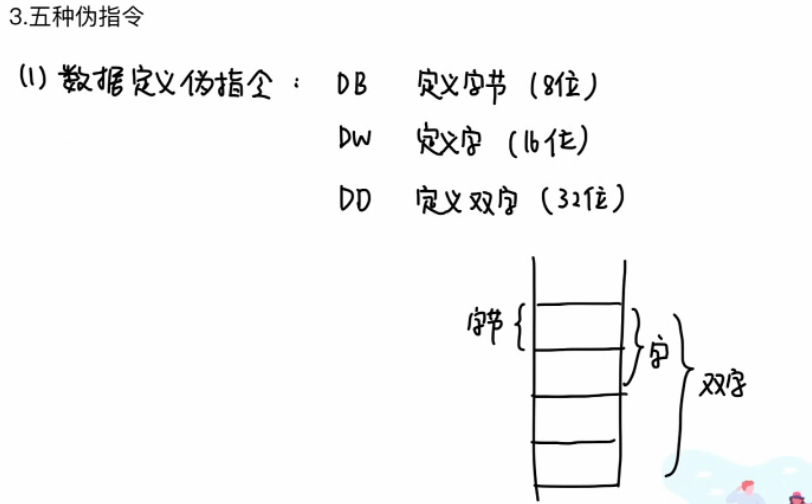 3.五种伪指令
(1) 数据定义伪指令： DB 定义字节 (8位)
DW 定义字 (16位)
DD 定义双字 (32位)
字节
字
双字